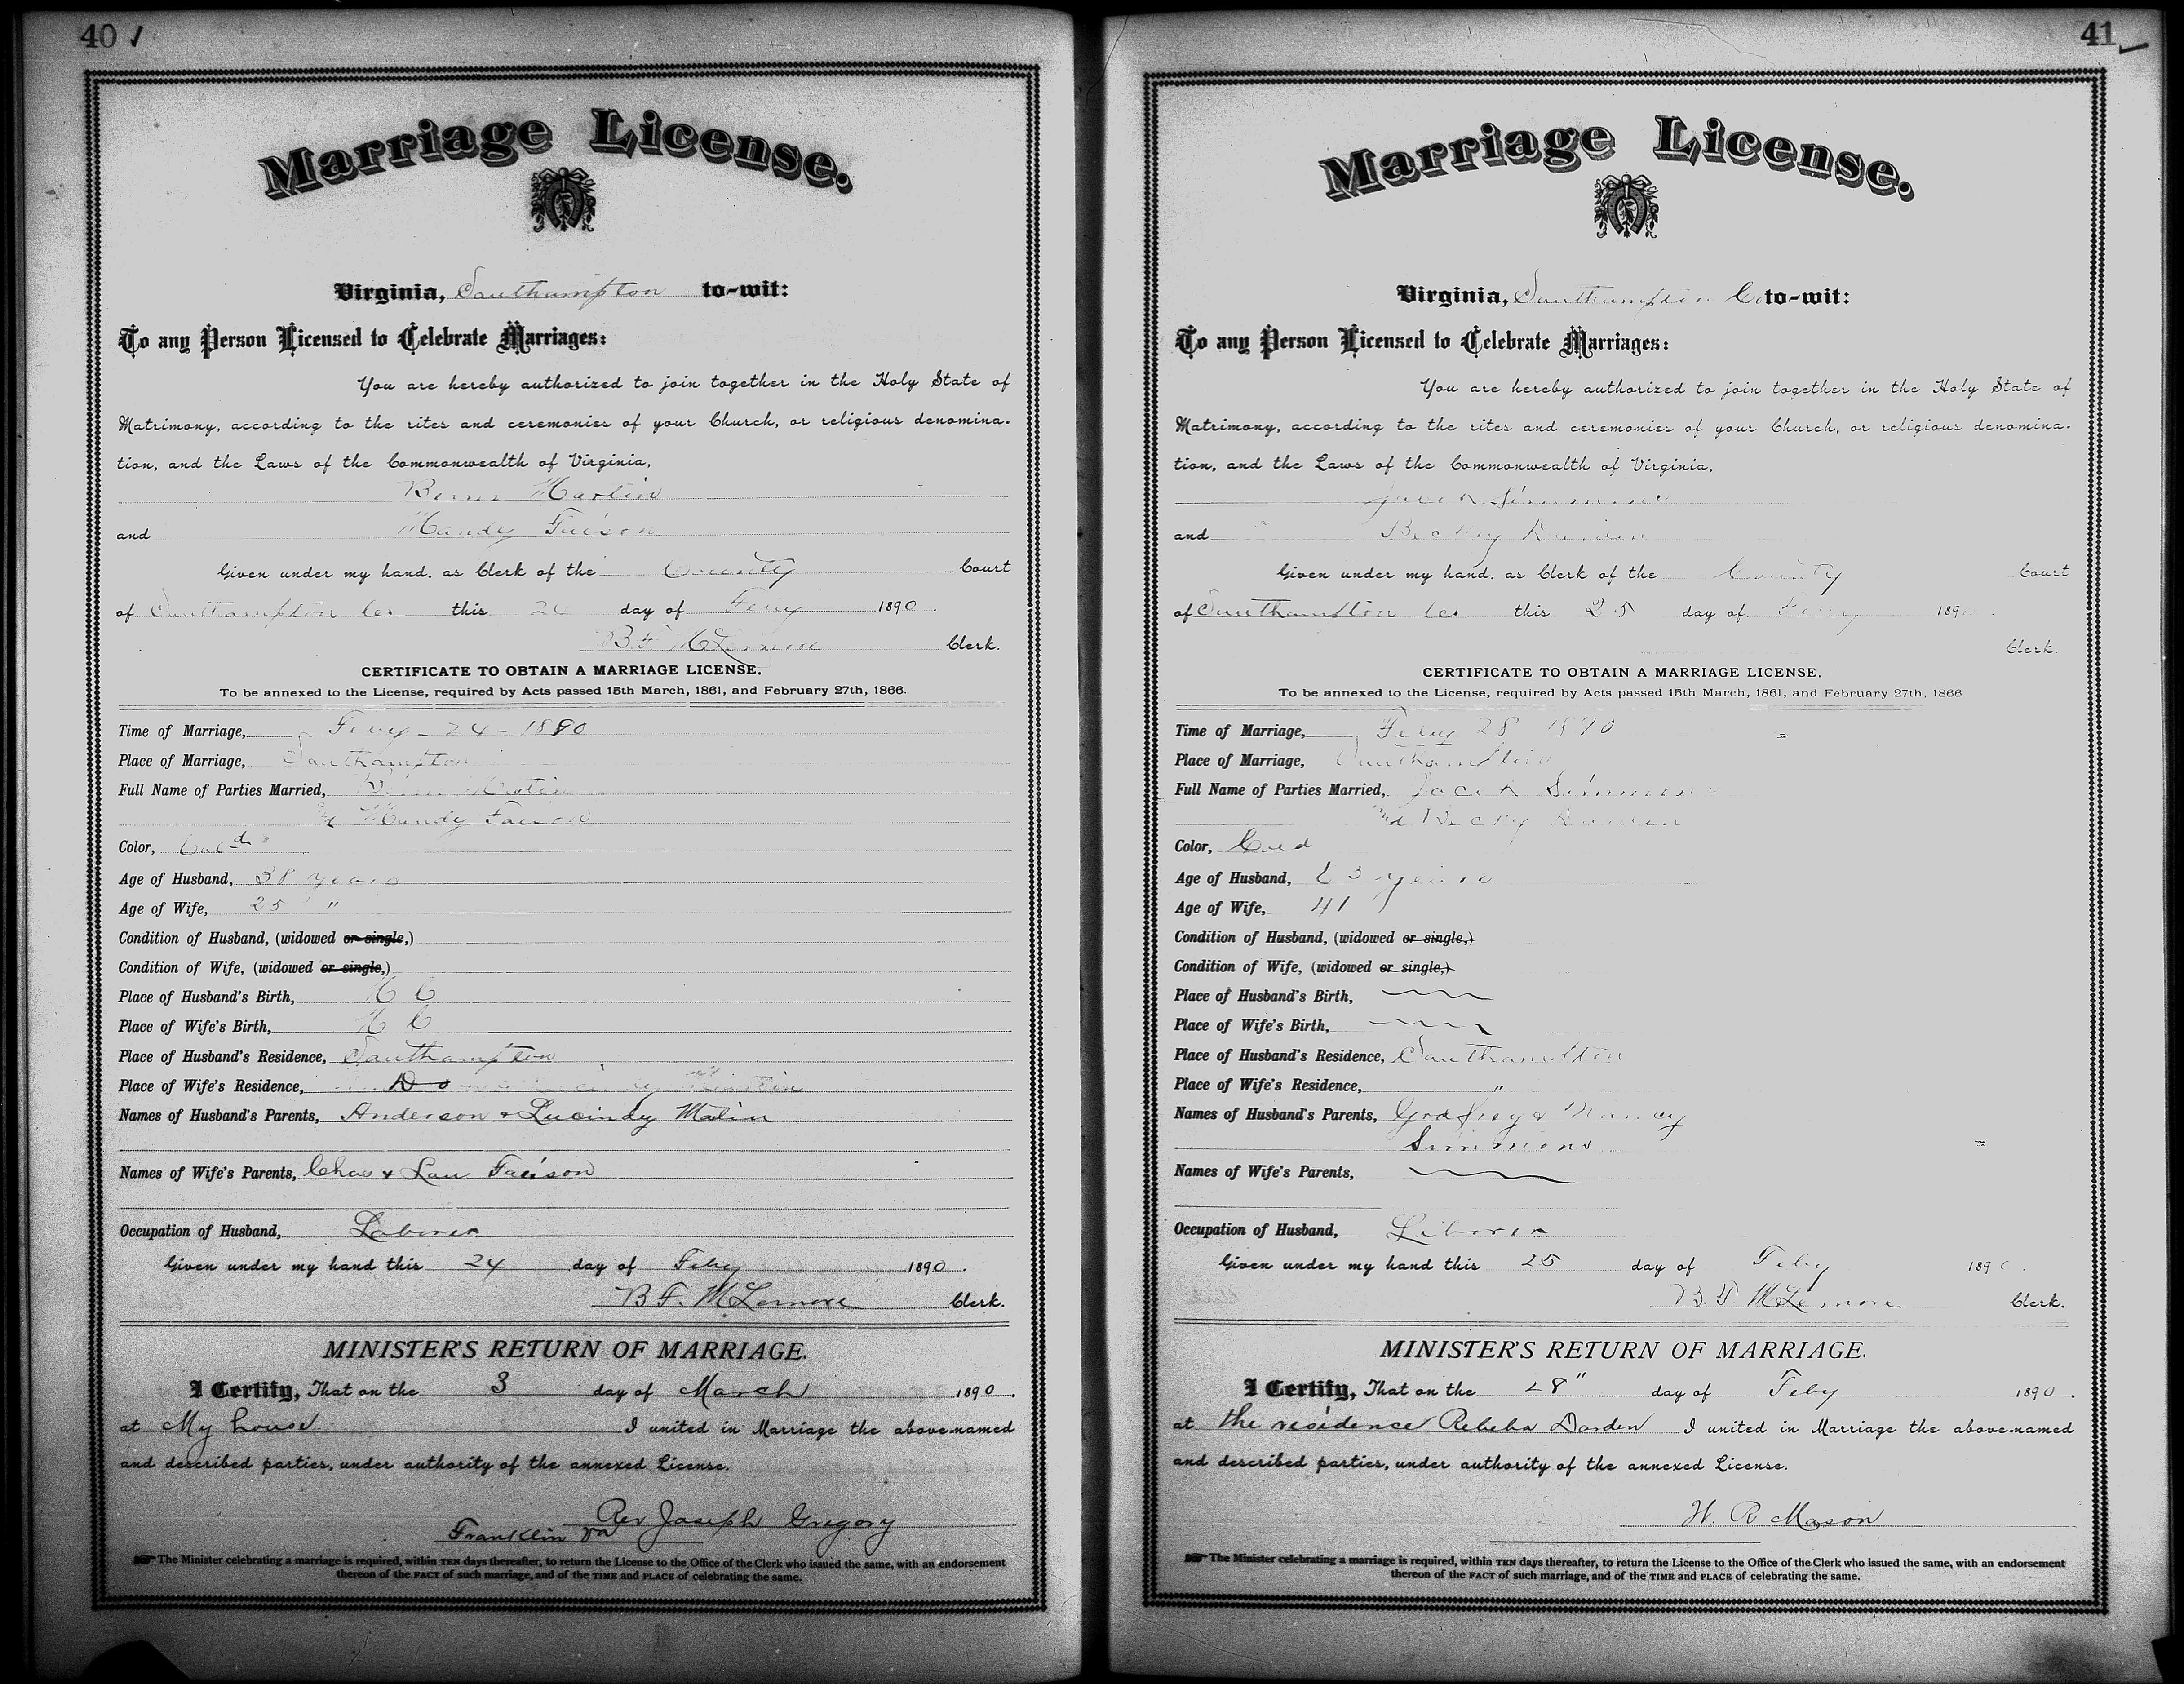 40
Marriage License.
Virginia, Southampton to-wit:
To any Person Licensed to Celebrate Marriages:
You are hereby authorized to join together in the Holy State of
Matrimony, according to the rites and ceremonies of your Church, or religious denomina-
tion, and the Laws of the Commonwealth of Virginia,
Martin
and Mandy Faison
Given under my hand, as Clerk of the County Court
of Southampton Co this day of Feby 1890.
B F McLemore Clerk.
CERTIFICATE TO OBTAIN A MARRIAGE LICENSE.
To be annexed to the License, required by Acts passed 15th March, 1861, and February 27th, 1866.
Time of Marriage, Feby - 24 - 1890
Place of Marriage, Southampton
Full Name of Parties Married,
& Mandy Faison
Color, Cold
Age of Husband, 38 years
Age of Wife, 25 "
Condition of Husband, (widowed or single,)
Condition of Wife, (widowed or single,)
Place of Husband's Birth, N C
Place of Wife's Birth, N C
Place of Husband's Residence, Southampton
Place of Wife's Residence, Do
Names of Husband's Parents, Anderson & Lucindy
Names of Wife's Parents, Chas & Lau Faison
Occupation of Husband, Laborer
Given under my hand this 24 day of Feby 1890.
B F. McLemore Clerk.
MINISTER'S RETURN OF MARRIAGE.
I Certify, That on the 3 day of March 1890.
at My house I united in Marriage the above-named
and described parties, under authority of the annexed License.
Rev Joseph Gregory
Franklin Va
The Minister celebrating a marriage is required, within TEN days thereafter, to return the License to the Office of the Clerk who issued the same, with an endorsement
thereon of the FACT of such marriage, and of the TIME and PLACE of celebrating the same.
41
Marriage License.
Virginia, Southampton Co to-wit:
To any Person Licensed to Celebrate Marriages:
You are hereby authorized to join together in the Holy State of
Matrimony, according to the rites and ceremonies of your Church, or religious denomina-
tion, and the Laws of the Commonwealth of Virginia,
Jacob Simmons
and Becky Darden
Given under my hand, as Clerk of the County Court
of Southampton Co this 25 day of Feby 189
Clerk.
CERTIFICATE TO OBTAIN A MARRIAGE LICENSE.
To be annexed to the License, required by Acts passed 15th March, 1861, and February 27th, 1866
Time of Marriage, Feby 28 1890
Place of Marriage, Southampton
Full Name of Parties Married, Jacob Simmons
and Becky Darden
Color, Cold
Age of Husband, years
Age of Wife, 41
Condition of Husband, (widowed or single,)
Condition of Wife, (widowed or single,)
Place of Husband's Birth,
Place of Wife's Birth,
Place of Husband's Residence, Southampton
Place of Wife's Residence, "
Names of Husband's Parents, Godfrey & Nancy
Simmons
Names of Wife's Parents,
Occupation of Husband, Laborer
Given under my hand this 25 day of Feby 1890.
B. F McLemore Clerk.
MINISTER'S RETURN OF MARRIAGE.
I Certify, That on the 28" day of Feby 1890.
at the residence Rebeha Darden I united in Marriage the above-named
and described parties, under authority of the annexed License.
W. R Mason
The Minister celebrating a marriage is required, within TEN days thereafter, to return the License to the Office of the Clerk who issued the same, with an endorsement
thereon of the FACT of such marriage, and of the TIME and PLACE of celebrating the same.